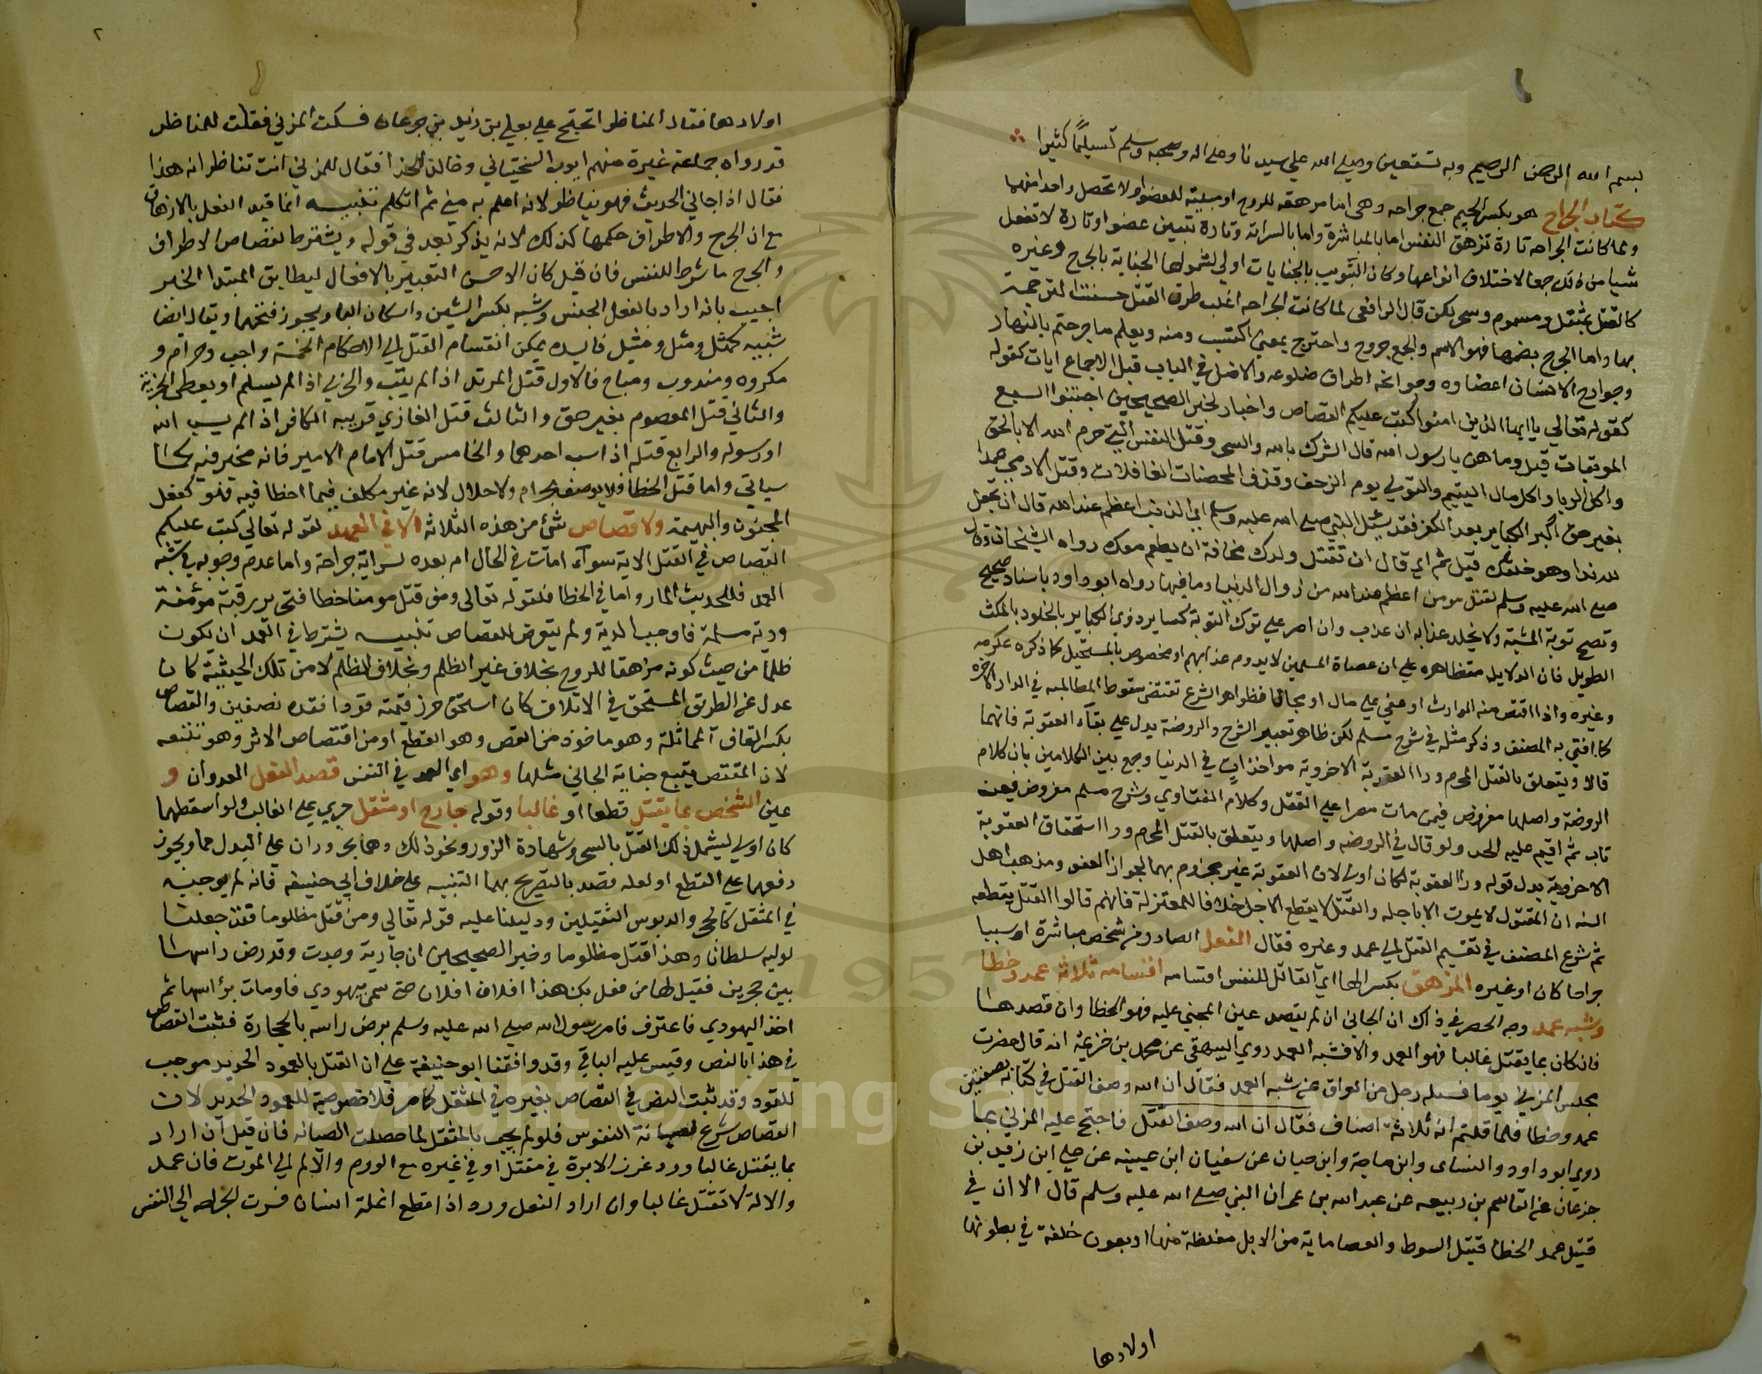 بسم الله الرحمن الرحيم وبه نستعين وصلى الله على سيدنا وعلى اله وصحبه وسلم تسليمًا كثيرا
كتاب الجراح هو بكسر الجيم جمع جراحه وهي اما مزهقه للروح او مبينة للعضو اولا تحصل واحدا منهما
ولما كانت الجراحه تارة تزهق النفس اما بالمباشرة واما بالسراية وتارة تبين عضوا وتارة لا تفعل
شيا من ذلك جمعها لاختلاف انواعها وكان التبويب بالجنايات اولى لشمولها الجناية بالجرح وغيره
كالقتل بمثقل ومسموم وسحر لكن قال الرافعي لما كانت الجراحه اغلب طرق القتل حسنت الترجمة
بها واما الجرح بضمها فهو الاسم والجمع جروح واجترح بمعنى اكتسب ومنه ويعلم ما جرحتم بالنهار
وجوارح الانسان اعضاوه وعوامله اطراف ضلوعه والاصل في الباب قبل الاجماع ايات كقوله
كقوله تعالى يا ايها الذين امنوا كتب عليكم القصاص واخبار لخبر الصحيحين اجتنبوا السبع
الموبقات قيل وما هن يا رسول الله قال الشرك بالله والسحر وقتل النفس التي حرم الله الا بالحق
واكل الربا واكل مال اليتيم والتولي يوم الزحف وقذف المحصنات الغافلات وقتل الادمي عمدا
بغير حق اكبر الكباير بعد الكفر فقد سئل النبي صلى الله عليه وسلم اي الذنب اعظم عند الله قال ان تجعل
لله ندا وهو خلقك قيل ثم اي قال ان تقتل ولدك مخافة ان يطعم معك رواه الشيخان وقال
صلى الله عليه وسلم لقتل مومن اعظم عند الله من زوال الدنيا وما فيها رواه ابو داود باسناد صحيح
وتصح توبة المسلم ولا يخلد عذابه ان عذب وان اصر على ترك التوبة كساير ذوي الكباير بالخلود بالمكث
الطويل فان الدلايل متظاهره على ان عصاة المسلمين لا يدوم عذابهم او مخصوص بالمستحيل كما ذكره عكرمه
وغيره واذا اقتص منه الوارث او عفى على مال او مجانا فظواهر الشرع تقتضي سقوط المطالبه في الدار الاخره
كما افتى به المصنف وذكر مثله في شرح مسلم لكن ظاهر تعبير الشرح والروضة يدل على بقاء العقوبة فانهما
قالا ويتعلق بالقتل المحرم ورا العقوبة الاخروية مواخذات في الدنيا وجمع بين الكلامين بان كلام
الروضة واصلها مفروض فيمن مات مصرا على القتل وكلام الفتاوي وشرح مسلم مفروض فيمن
تاب ثم اقيم عليه الحد ولو قال في الروضه واصلها ويتعلق بالقتل المحرم ورا استحقاق العقوبة
الاخروية بدل قوله ورا العقوبة لكان اولى لان العقوبة غير مجزوم بها لجواز العفو ومذهب اهل
السنه ان المقتول لا يموت الا باجله والقتل لا يقطع الاجل خلافا للمعتزلة فانهم قالوا القتل يقطعه
ثم شرع المصنف في تقسيم القتل الى عمد وغيره فقال الفعل الصادر من شخص مباشرة او سببا
جراحا كان او غيره المزهق بكسر الها اي القاتل للنفس اقسامه اقسامه ثلاثه عمد وخطا
وشبه عمد وجه الحصر في ذلك ان الجاني ان لم يقصد عين المجني عليه فهو الخطا وان قصدها
فان كان بما يقتل غالبا فهو العمد والا فشبه العمد روى البيهقي عن محمد بن خزيمة انه قال حضرت
مجلس المزني يوما فسئله رجل من العراق عن شبه العمد فقال ان الله وصف القتل في كتابه بصفتين
عمد وخطا فلما قلتم انه ثلاثة اصناف فقال ان الله وصف القتل فاحتج عليه المزني بما
روى ابو داود والنساى وابن ماجة وابن حبان عن سفيان ابن عيينه عن علي ابن زيد بن
جزعان عن القاسم بن ربيعه عن عبد الله بن عمر ان النبي صلى الله عليه وسلم قال الا ان في
قتيل عمد الخطا قتيل السوط والعصا ماية من الابل مغلظة منها اربعون خلفة في بطونها
اولادها
٢
اولادها فقال المناظر اتحتج علي بعلي بن زيد بن جرعان فسكت المزني فقلت للمناظر
قد رواه جماعة غيره منهم ايوب السختياني وخالد الحذا فقال للمزني انت تناظر ام هذا
فقال اذا جاني الحديث فهو يناظر لانه اعلم به مني ثم اتكلم تنبيه انما قيد الفعل بالازهاق
مع ان الجرح والاطراف حكمها كذلك لانه يذكر بعد في قوله ويشترط لقصاص الاطراف
والجرح ما شرط للنفس فان قيل كان الاحسن التعبير بالافعال ليطابق المبتدا الخبر
اجيب بانه اراد بالفعل الجنس وشبه بكسر الشين واسكان البا ويجوز فتحهما ويقال ايضا
شبيه كمثل ومثل ومثيل فايده يمكن انقسام القتل الى الاحكام الخمسة واجب وحرام و
مكروه ومندوب ومباح فالاول قتل المرتد اذا لم يتب والحربي اذا لم يسلم او يعطى الجزية
والثاني قتل المعصوم بغير حق والثالث قتل الغازي قريبه الكافر اذا لم يسب الله
او رسوله والرابع قتله اذا سب احدهما والخامس قتل الامام الاسير فانه مخير فيه كما
سياتي واما قتل الخطا فلا يوصف بحرام ولا حلال لانه غير مكلف فيما اخطا فيه فهو كفعل
المجنون والبهيمة ولا قصاص شئ من هذه الثلاثه الا في العمد لقوله تعالى كتب عليكم
القصاص في القتلى الاية سوآء امات في الحال ام بعده بسراية جراحة واما عدم وجوبه في شبه
العمد فللحديث المار واما في الخطا فلقوله تعالى ومن قتل مومنا خطا فتحرير رقبة مؤمنة
ودية مسلمة فاوجب الدية ولم يتعرض للقصاص تنبيه يشترط في العمد ان يكون
ظلما من حيث كونه مزهقا للروح بخلاف غير الظلم وبخلاف الظلم لا من تلك الحيثية كان
عدل عن الطريق المستحق في الاتلاف كان استحق حز رقبته قودا فقده نصفين والقصاص
بكسر القاف المماثلة وهو ماخوذ من القص وهو القطع او من اقتصاص الاثر وهو تتبعه
لان المقتص يتبع جناية الجاني مثلها وهو اي العمد في النفس قصد الفعل العدوان و
عين الشخص بما يقتل قطعا او غالبا وقوله جارح او مثقل جرى على الغالب ولو اسقطهما
كان اولى ليشمل ذلك القتل بالسحر وشهادة الزور ونحو ذلك وهما مجروران على البدل مما ويجوز
رفعهما على القطع او لعله قصد بالتصريح بهما التنبيه على خلاف ابي حنيفه فانه لم يوجبه
في المثقل كالحجر والدبوس الثقيلين ودليلنا عليه قوله تعالى ومن قتل مظلوما فقد جعلنا
لوليه سلطانا وهذا قتل مظلوما وخبر الصحيحين ان جارية وجدت وقد رض راسها
بين حجرين فقيل لها من فعل بك هذا افلان افلان حتى سمي يهودي فاومات براسها ثم
اخذ اليهودي فاعترف فامر رسول الله صلى الله عليه وسلم برض راسه بالحجارة فثبت القصاص
في هذا بالنص وقيس عليه الباقي وقد وافقنا ابو حنيفة على ان القتل بالعمود الحديد موجب
للقود وقد ثبت النص في القصاص بغيره في المثقل كما مر فلا خصوصية للعمود الحديد لان
القصاص شرع لصيانة النفوس فلو لم يجب بالمثقل لما حصلت الصيانه فان قيل ان اراد
بما يقتل غالبا ورد غرز الابرة في مقتل او في غيره مع الورم والالم الى الموت فانه عمد
والالة لا تقتل غالبا وان اراد الفعل ورد اذا قطع انملة انسان فسرت الجراحه الى النفس